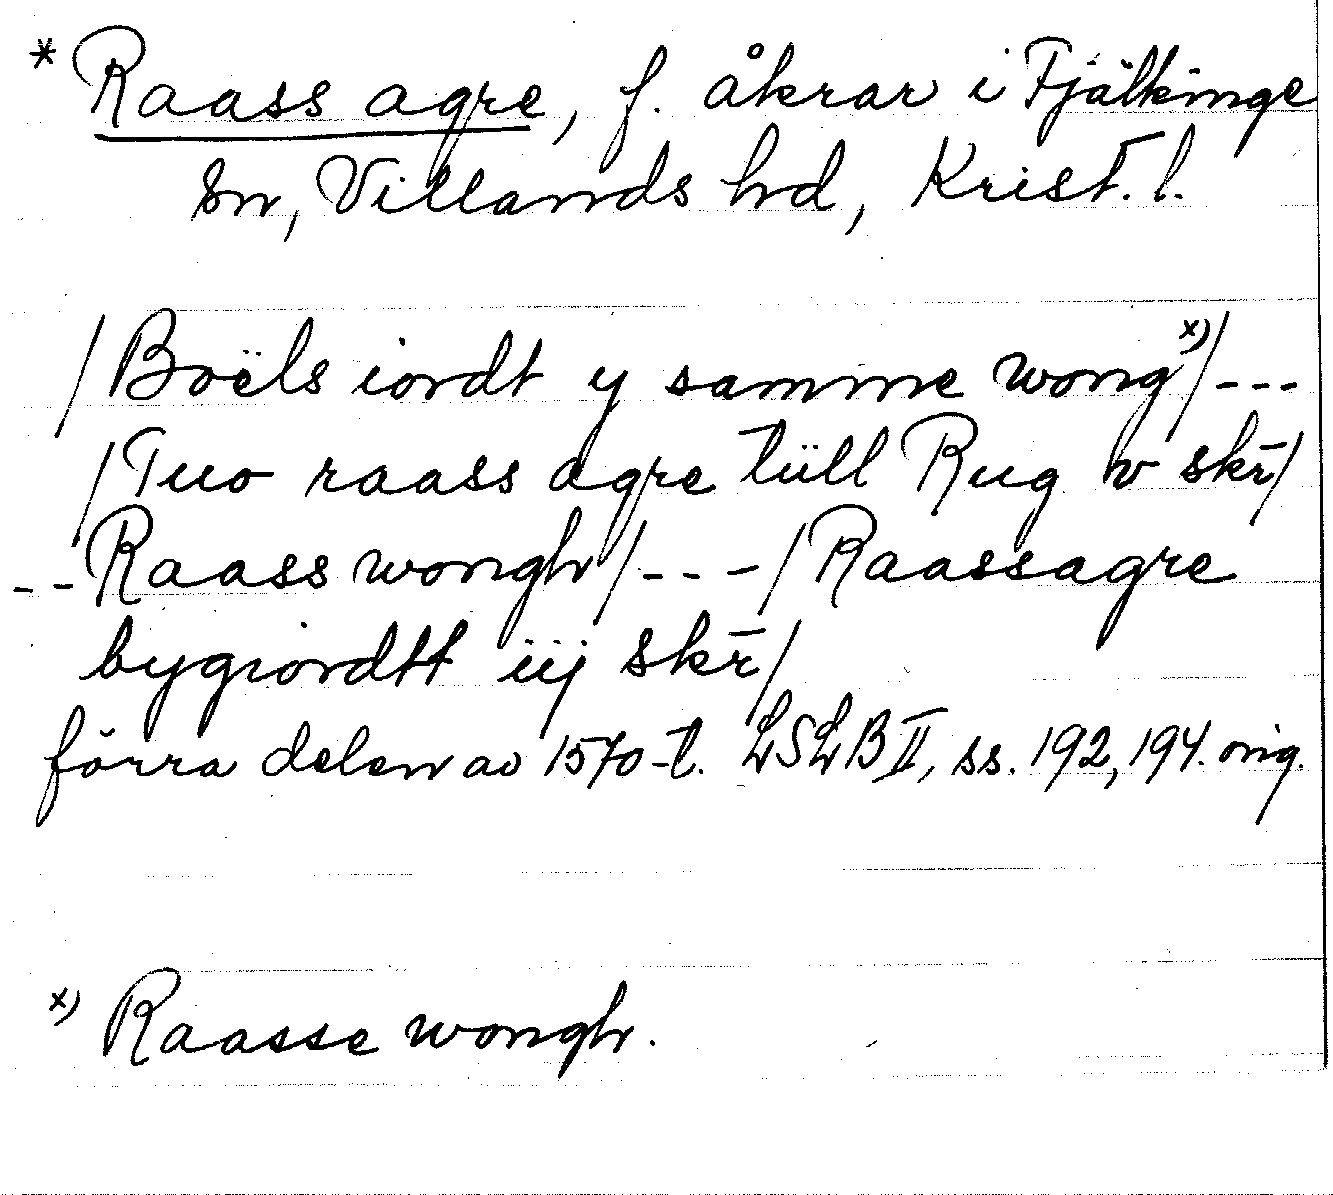 * Raass agre, f. åkrar i Fjälkinge
sn, Villands hd, Krist. l.
/Boëls iordt y samme wong x)/ ---
/Tuo raass agre tüll Rug v skr̄/
-- Raass wongh/ --- /Raassagre
bygiordtt iij skr̄/
förra delen av 1570-t. LSLB II, ss. 192, 194. orig.
x) Raasse wongh.